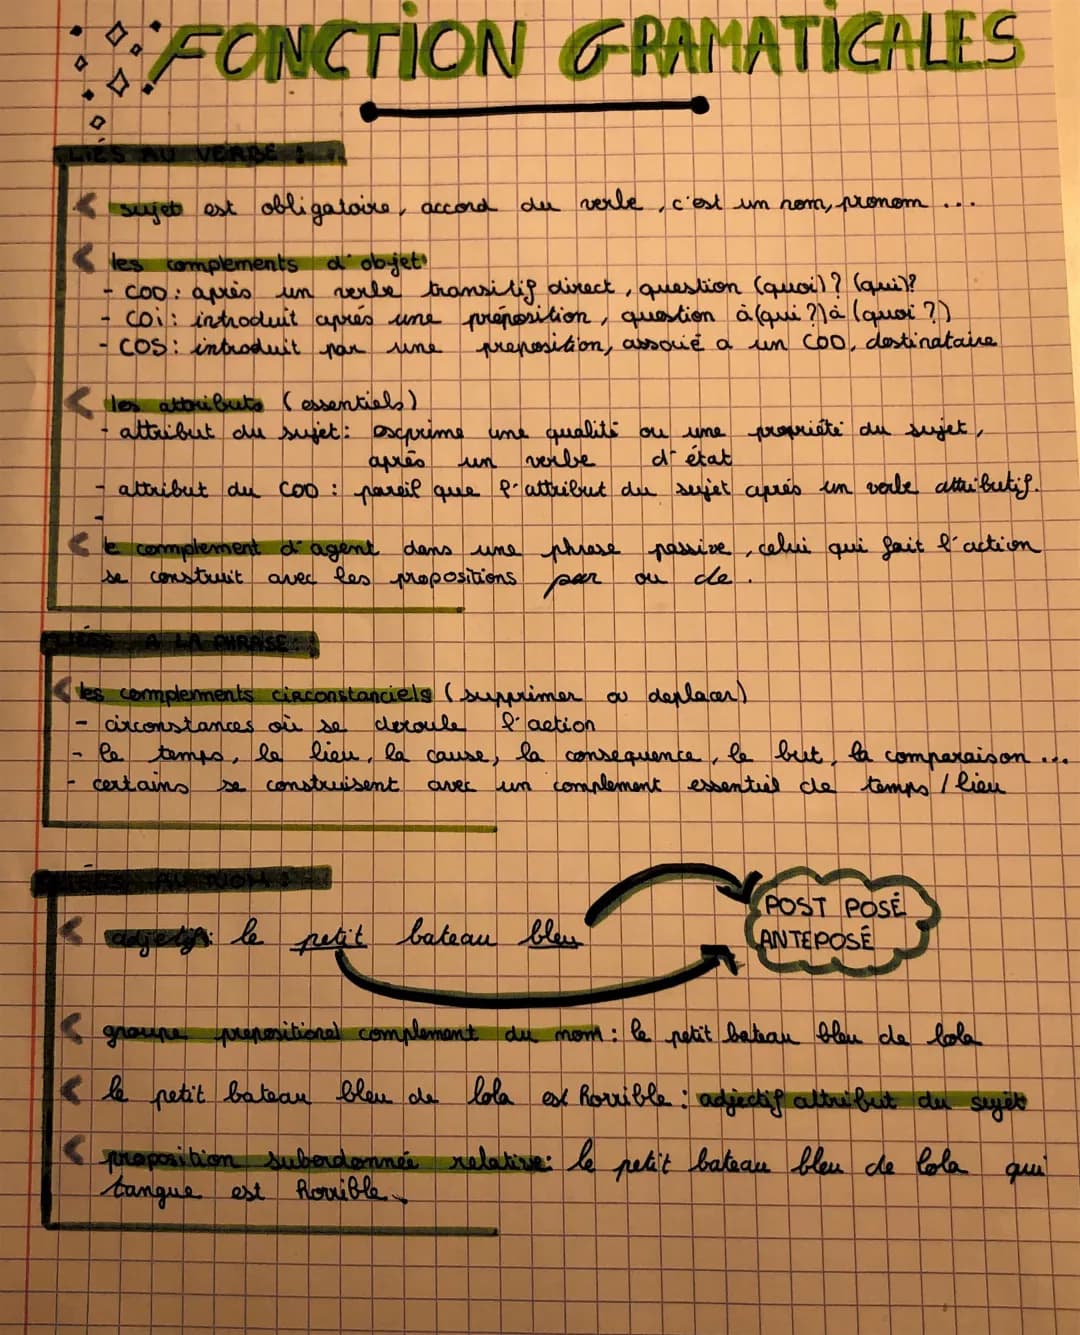 FONCTION GRAMATICALES
LIÉS AU VERBE :
sujet est obligatoire, accord du verbe, c'est un nom, pronom ...
les complements d'objet
- COD : après un verbe transitif direct, question (quoi)? (qui)?
- COi : introduit après une préposition, question à (qui ?) à (quoi ?)
- COS : introduit par une preposition, associé a un COD, destinataire
les attributs (essentiels)
- attribut du sujet : exprime une qualité ou une propriété du sujet,
après un verbe d'état
- attribut du COD : pareil que l'attribut du sujet après un verbe attributif.
-
le complement d'agent dans une phrase passive, celui qui fait l'action
se construit avec les propositions par ou de.
LIÉES A LA PHRASE :
les complements circonstanciels (supprimer ou deplacer)
- circonstances où se deroule l'action
- le temps, le lieu, la cause, la consequence, le but, la comparaison ...
- certains se construisent avec un complement essentiel de temps / lieu
LIÉES AU NOM :
adjectifs : le petit bateau bleu
POST POSÉ
ANTEPOSÉ
groupe prepositionel complement du nom : le petit bateau bleu de lola
le petit bateau bleu de lola est horrible : adjectif attribut du sujet
proposition subordonnée relative : le petit bateau bleu de lola qui
tangue est horrible.